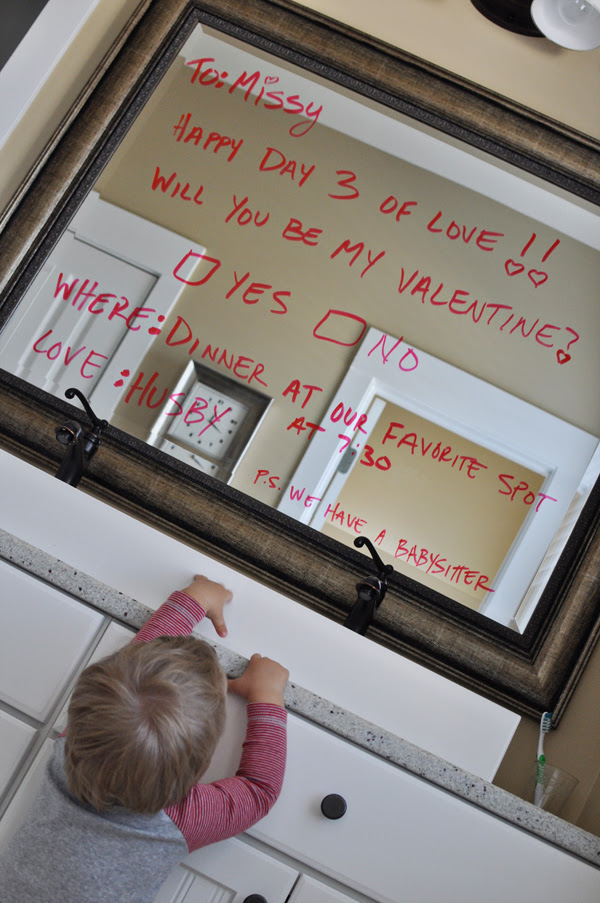 To: Missy
HAPPY DAY 3 OF LOVE!!
WILL YOU BE MY VALENTINE?
YES NO
WHERE: DINNER AT OUR FAVORITE SPOT
AT 7:30
LOVE: HUSBY
P.S. WE HAVE A BABYSITTER